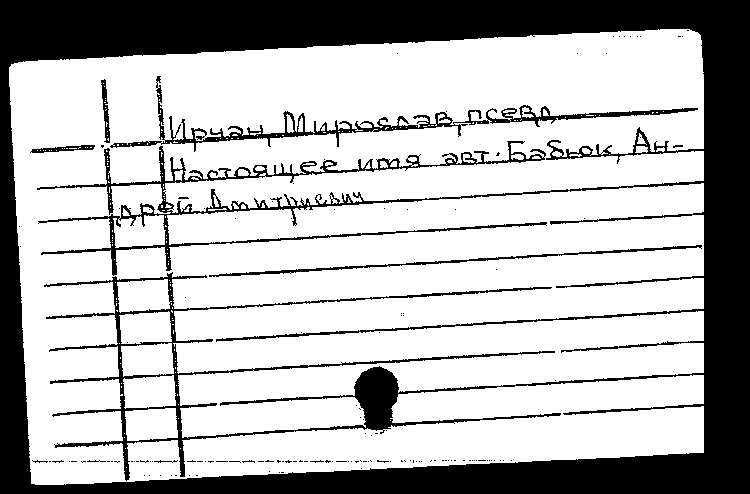 Ирчан, Мирослав, псевд.
Настоящее имя авт. Бабюк, Ан-
дрей Дмитриевич